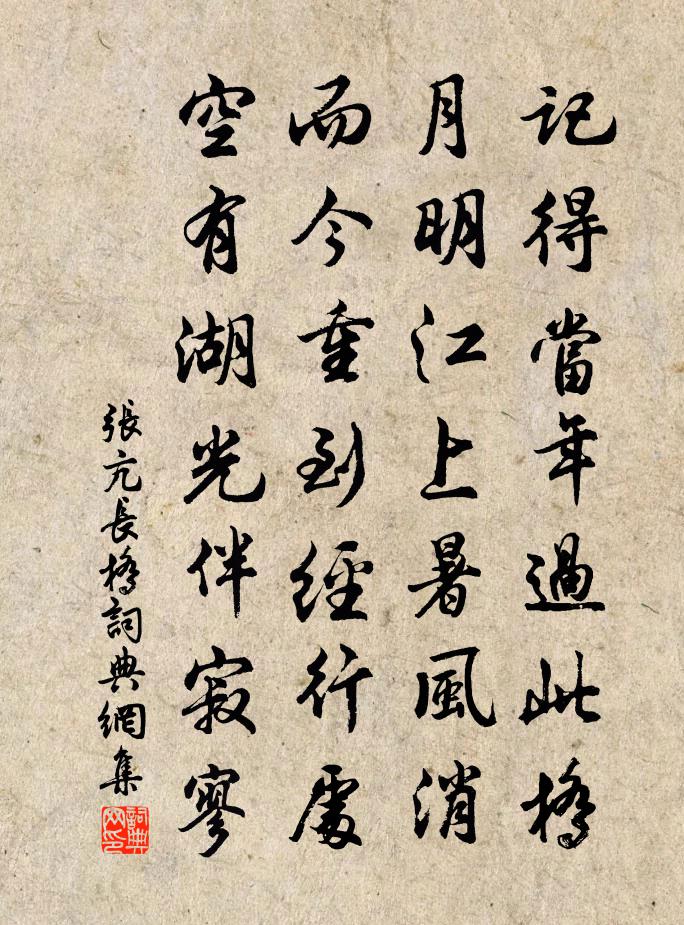 記得當年過此橋
月明江上暑風消
而今重到經行處
空有湖光伴寂寥
張亢長橋詞典網集
詞典
网印